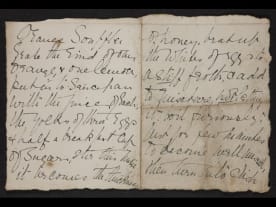 Orange Soufflé
Grate the rind of three
Oranges, and one Lemon,
put in to Saucepan
with the juice of each,
the yolks of three Eggs
and half a breakfast Cup
of Sugar, Stir this till
it becomes the thickness
of honey, beat up
the Whites of Eggs to
a Stiff froth & add
to mixture, put
it on
just for few minutes
to become well mixed,
then turn into